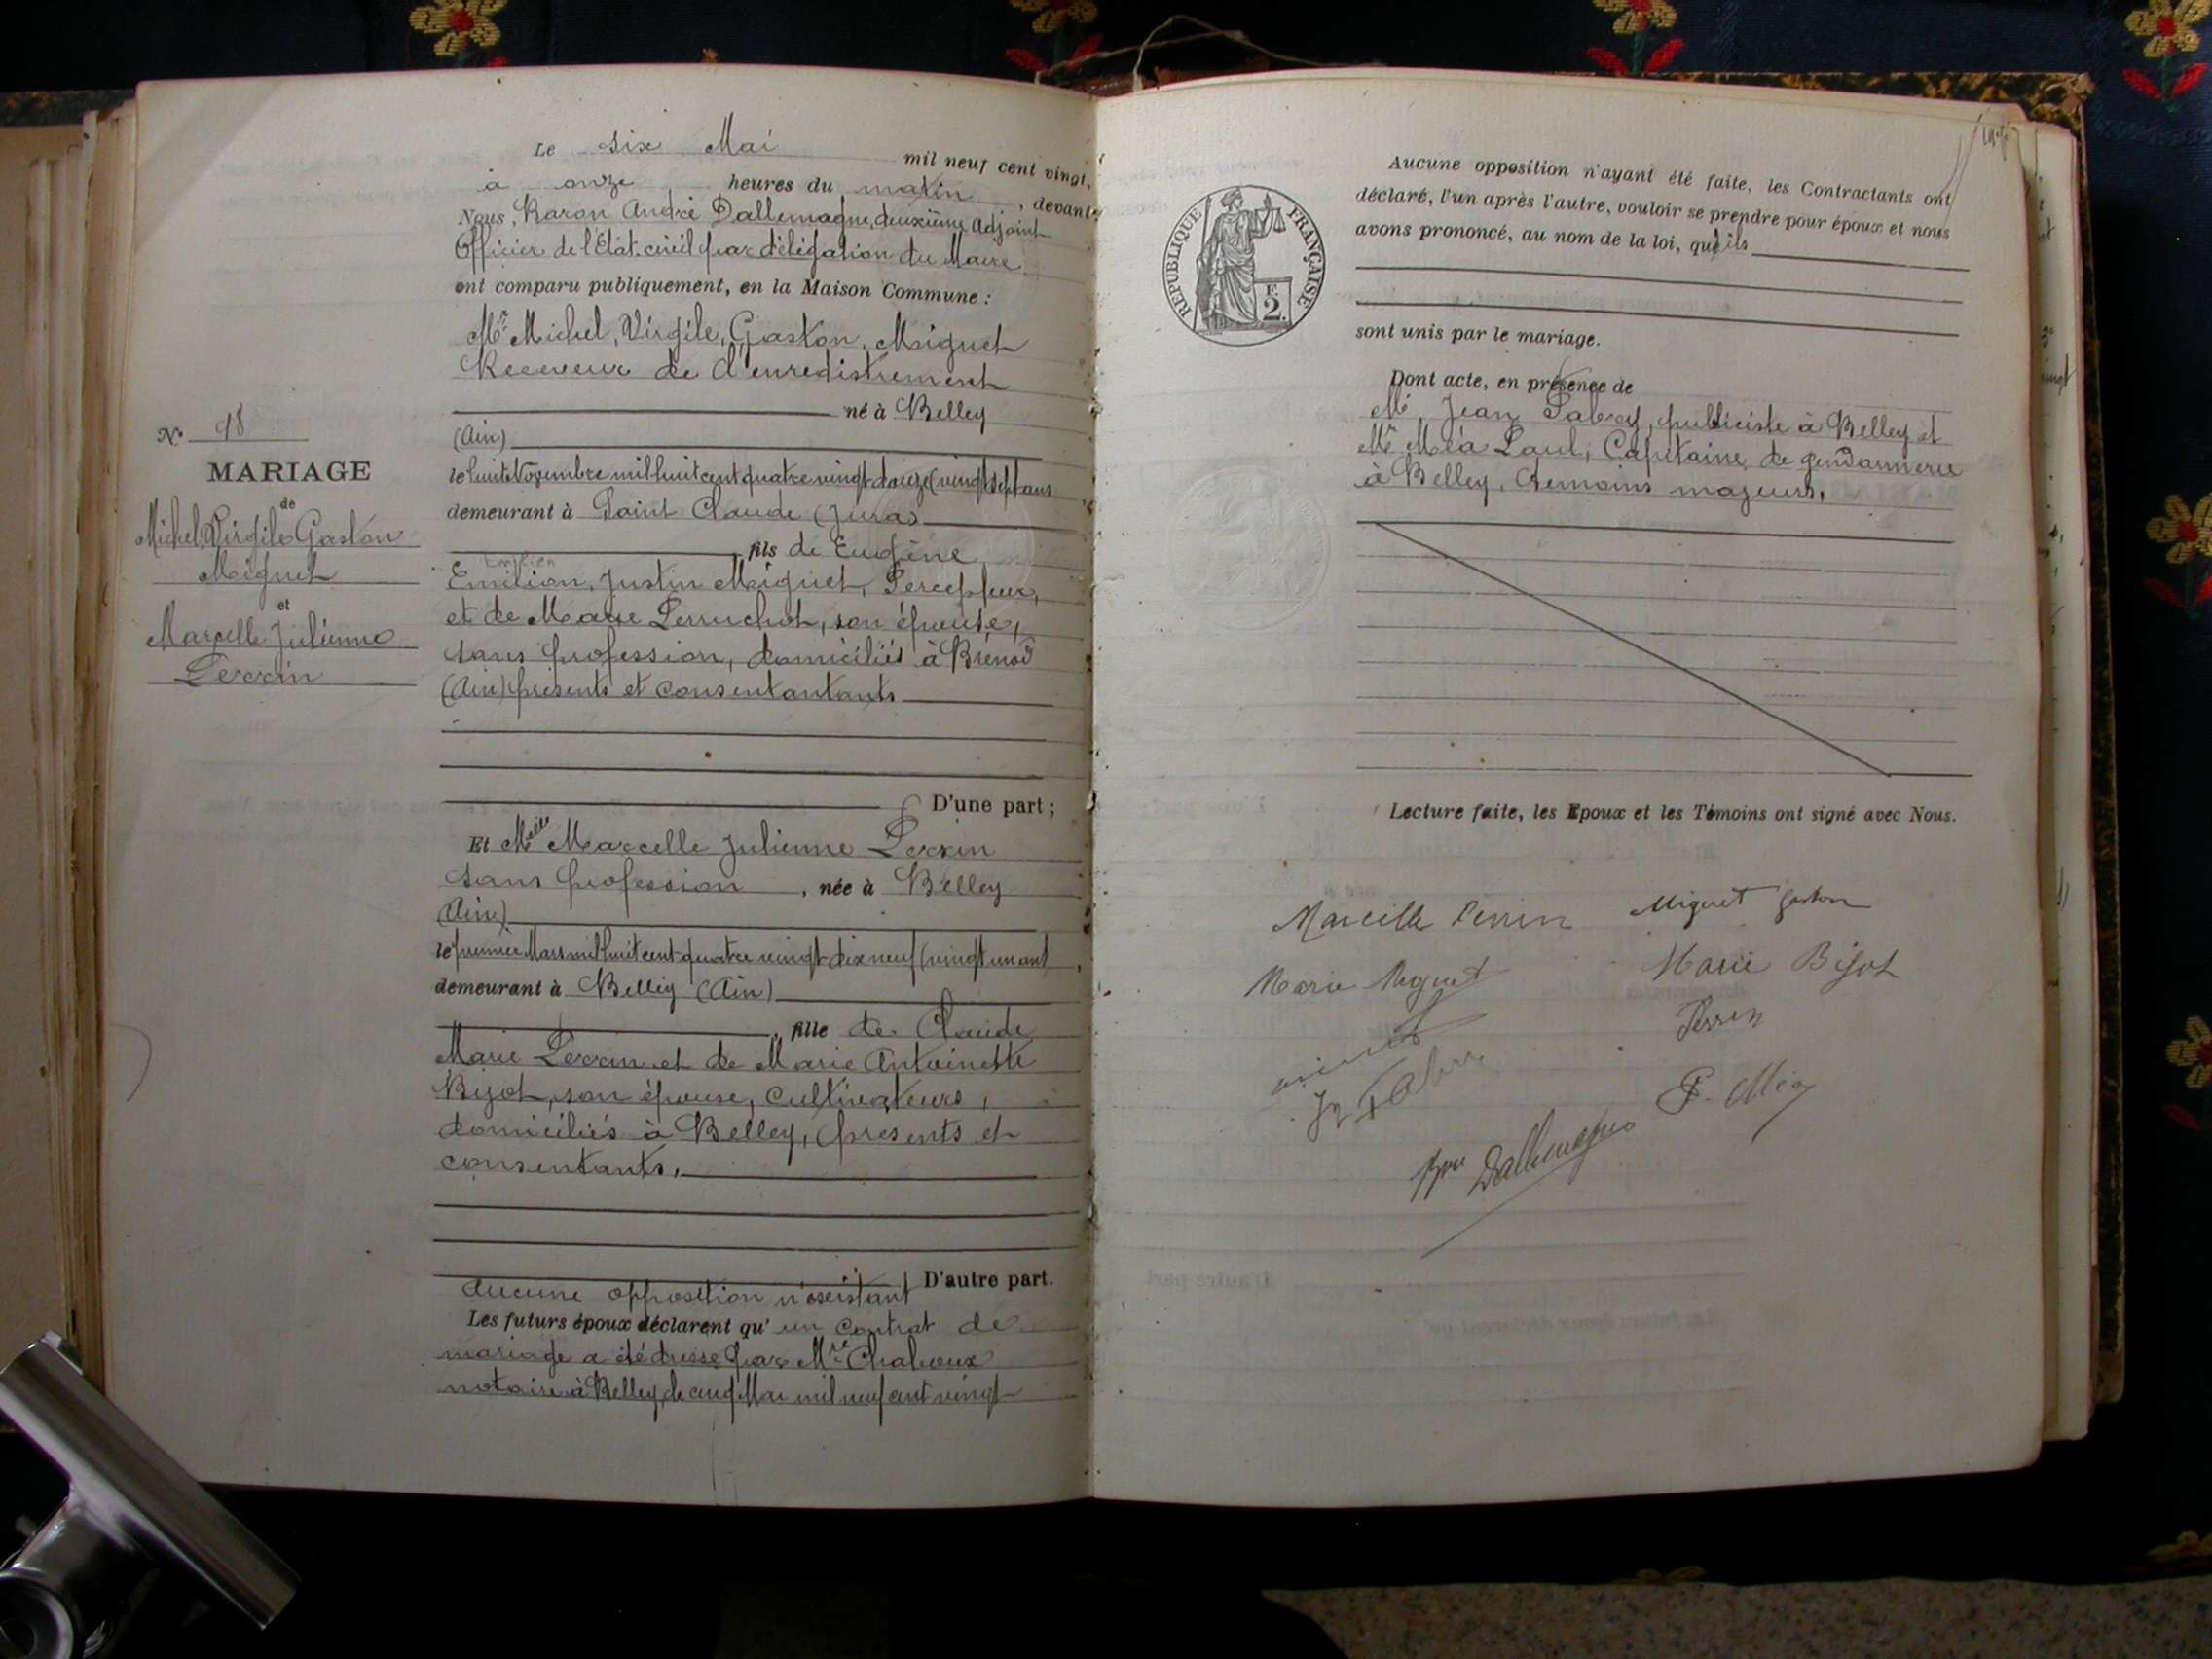 Le six Mai mil neuf cent vingt,
à onze heures du matin, devant
Nous, Baron André Dallemagne, deuxième Adjoint
Officier de l'Etat-civil par délégation du Maire
ont comparu publiquement, en la Maison Commune :
Mr Michel, Virgile, Gaston, Miguet
Receveur de l'enregistrement
né à Belley
(Ain)
le huit Novembre mil huit cent quatre vingt douze (vingt sept ans
demeurant à Saint Claude (Jura)
fils de Eugène
Emilien
Emilion, Justin Miguet, Percepteur,
et de Marie Perruchot, son épouse,
sans profession, domiciliés à Brénod
(Ain) présents et consentantants
D'une part ;
Et Melle Marcelle Julienne Perrin
sans profession, née à Belley
(Ain)
le premier Mars mil huit cent quatre vingt dix neuf (vingt un ans)
demeurant à Belley (Ain)
, fille de Claude
Marie Perrin et de Marie Antoinette
Bijot, son épouse, cultivateurs,
domiciliés à Belley, présents et
consentants,
D'autre part.
Aucune opposition n'existant
Les futurs époux déclarent qu'un contrat de
mariage a été dressé par Mre
notaire à Belley, le cinq Mai mil neuf cent vingt
No 18
MARIAGE
de
Michel, Virgile Gaston
Miguet
et
Marcelle Julienne
Perrin
REPUBLIQUE FRANÇAISE
F.
2.
Aucune opposition n'ayant été faite, les Contractants ont
déclaré, l'un après l'autre, vouloir se prendre pour époux et nous
avons prononcé, au nom de la loi, qu'ils
sont unis par le mariage.
Dont acte, en présence de
Mr Jean, publiciste à Belley et
Mr Méa Paul, Capitaine de gendarmerie
à Belley, témoins majeurs,
Lecture faite, les Epoux et les Témoins ont signé avec Nous.
Marcelle Perrin
Miguet Gaston
Marie Miguet
Marie Bijot
Perrin
P. Méa
Bon Dallemagne